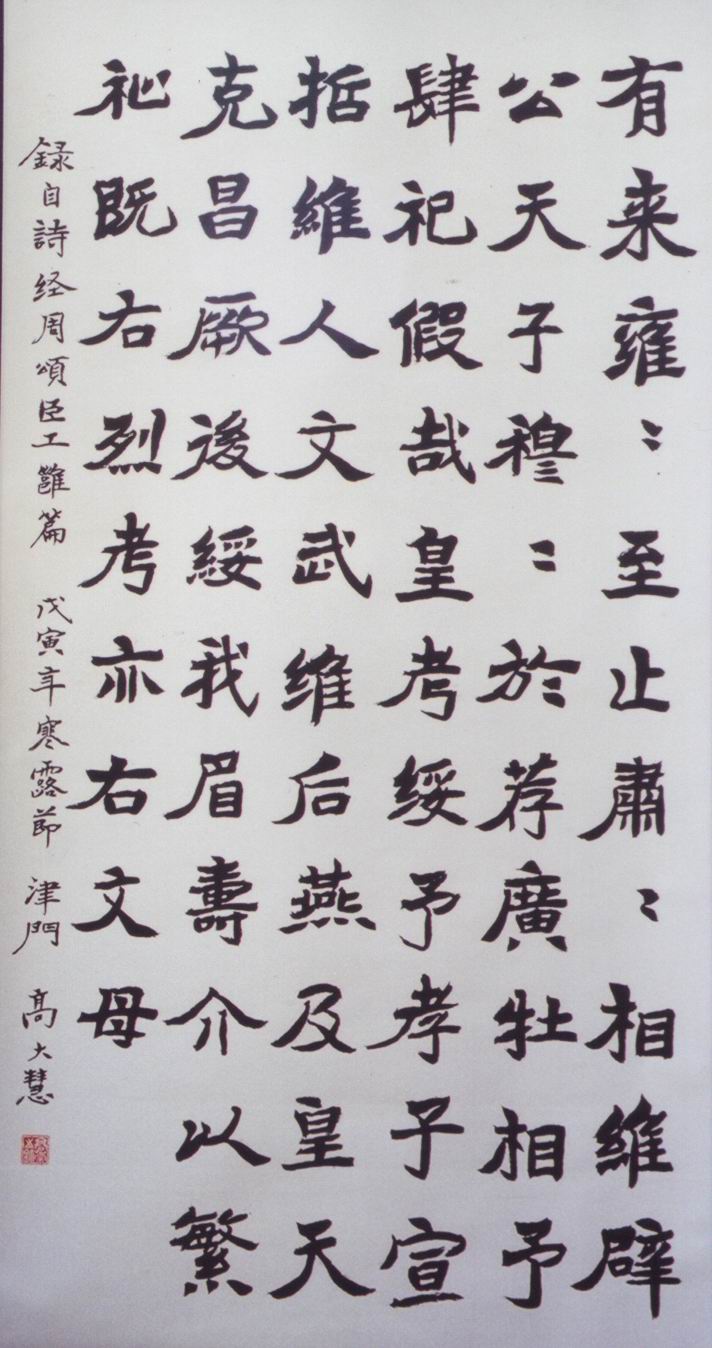 有来雍〻至止肅〻相維辟
公天子穆〻於荐廣牡相予
肆祀假哉皇考綏予孝子宣
哲維人文武维后燕及皇天
克昌厥後綏我眉壽介以繁
祉既右烈考亦右文母
録自詩经周頌臣工雝篇 戊寅年寒露節 津門 高大慧